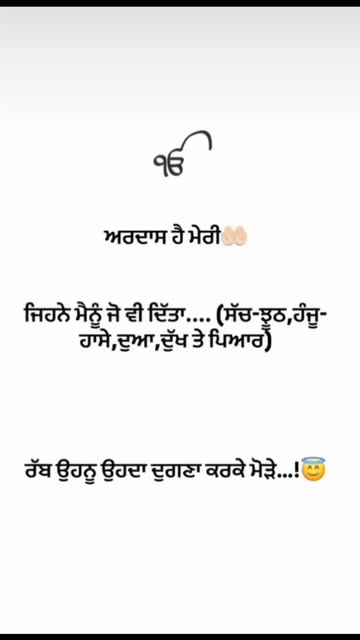 ੴ
ਅਰਦਾਸ ਹੈ ਮੇਰੀ🤲🏻
ਜਿਹਨੇ ਮੈਨੂੰ ਜੋ ਵੀ ਦਿੱਤਾ.... (ਸੱਚ-ਝੂਠ,ਹੰਜੂ-
ਹਾਸੇ,ਦੁਆ,ਦੁੱਖ ਤੇ ਪਿਆਰ)
ਰੱਬ ਉਹਨੂ ਉਹਦਾ ਦੁਗਣਾ ਕਰਕੇ ਮੋੜੇ...!😇